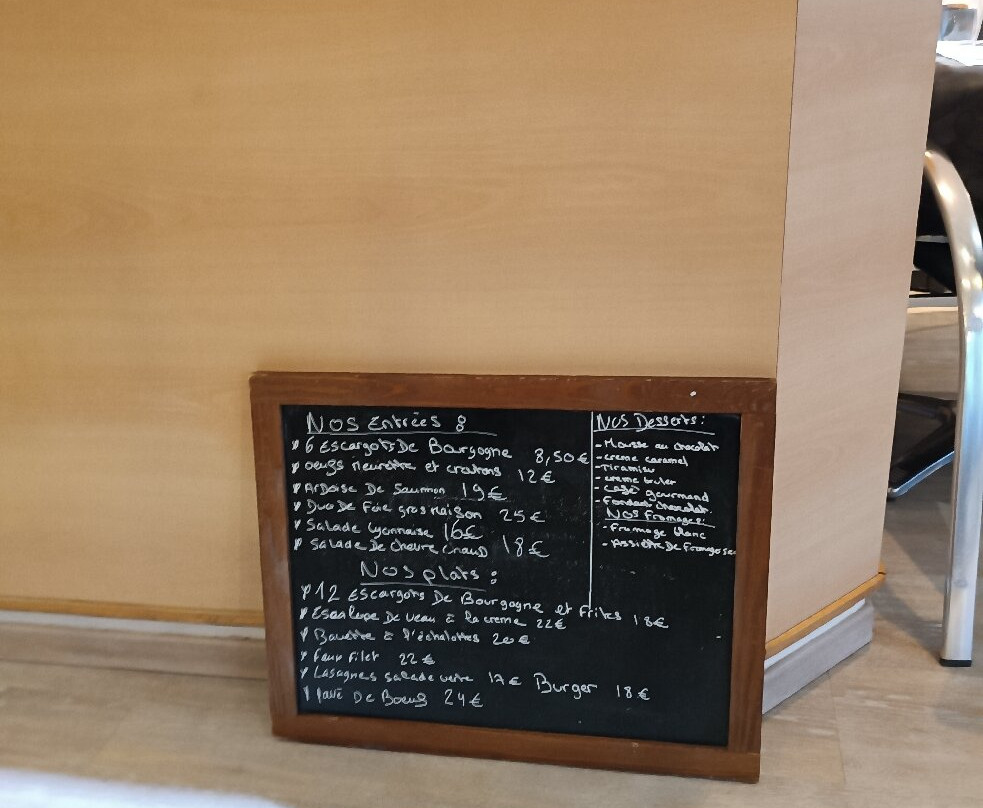 Nos Entrées :
6 Escargots De Bourgogne 8,50€
oeufs meurette et croutons 12€
Ardoise De Saumon 19€
Duo De Foie gras maison 25€
Salade Lyonnaise 16€
Salade De chevre chaud 18€
Nos plats :
12 Escargots De Bourgogne et frites 18€
Escalope De veau à la creme 22€
Bavette à l'échalottes 20€
Faux filet 22€
Lasagnes salade verte 17€ Burger 18€
Pavé De Boeuf 24€
Nos Desserts :
- Mousse au chocolat
- creme caramel
- Tiramisu
- creme bruler
- café gourmand
- Fondant chocolat
Nos Fromages :
- Fromage blanc
- Assiette De Fromages